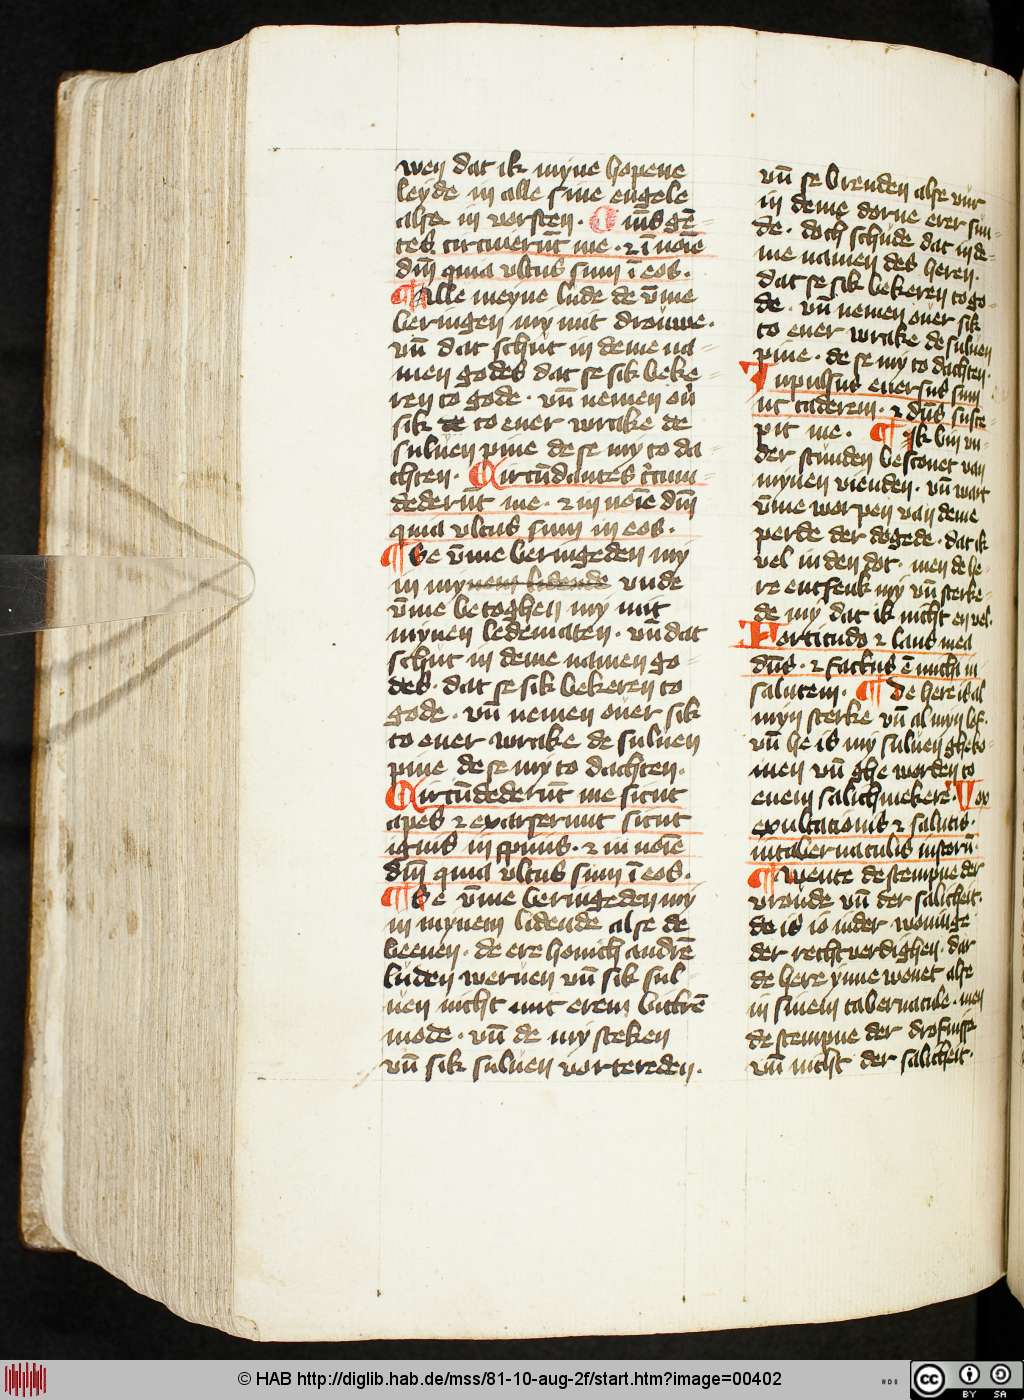 wen dat ik myne hopene
leyde in alle sine engele
alse in vorsten · Om̅s ge̅
tes circuieru̅t me · ⁊ i̅ noi̅e
dm̅ quia vltus sum i̅ eos ·
¶ Alle meyne lude de v̅me
beringen my mit drouwe ·
vn̅ dat schut in deme na
men godes dat se sik beke
ren to gode · vn̅ nemen ou̅
sik de to ener wrake de
suluen pine de se my to da
chten · Circu̅dantes circum
dederu̅t me · ⁊ in noi̅e dm̅
quia vltus sum in eos ·
¶ Se v̅me beringeden my
in mynem lidende vnde
v̅me betoghen my mit
mynen ledematen · vn̅ dat
schut in deme namen go
des · dat se sik bekeren to
gode · vn̅ nemen ouer sik
to ener wrake de suluen
pine de se my to dachten ·
Circu̅dederu̅t me sicut
apes ⁊ exarserunt sicut
ignis in spinis · ⁊ in noi̅e
dm̅ quia vltus sum i̅ eos ·
¶ Se v̅me beringeden my
in mynem lidende alse de
beenen · de ere honich andre̅
luden weruen vn̅ sik sul
uen nicht mit erem bittre̅
mode · vn̅ de my steken
vn̅ sik suluen vortereden ·
vn̅ se brenden alse vur
in deme dorne erer sun
de · doch schude dat in de
me namen des heren ·
dat se sik bekeren to go
de · vn̅ nemen ouer sik
to ener wrake de suluen
pine · de se my to dachten ·
Inpulsus euersus sum
ut caderem · ⁊ dn̅s susce
pit me · ¶ Ik bin vn
der stunden bestonet van
mynen vienden · vn̅ wart
v̅me worpen van deme
perde der dogede · dat ik
vel in den dot · men de he
re entfenk my vn̅ sterke
de my dat ik nicht en vel ·
Fortitudo ⁊ laus mea
dn̅s · ⁊ factus e̅ michi in
salutem · ¶ De here is al
myn sterke vn̅ al myn lof ·
vn̅ he is my suluen gheko
men vn̅ ghe worden to
enem salichmekere · Vox
exultacionis ⁊ salutis ·
in tabernaculis iustoru̅ ·
¶ Wente de stempne der
vroude vn̅ der salicheit ·
de is io in der woninge
der rechtverdighen · dar
de here ynne wonet alse
in sinem tabernacule · men
de stempne der drofnisse
vn̅ nicht der salicheit ·
© HAB http://diglib.hab.de/mss/81-10-aug-2f/start.htm?image=00402
HAB
CC BY SA